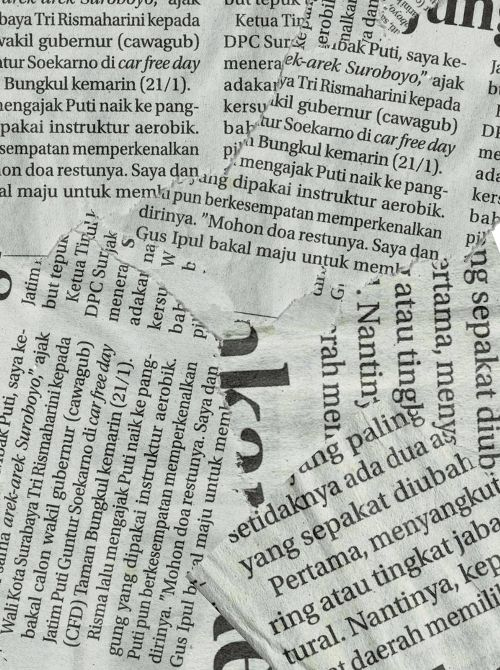 arek-arek Suroboyo," ajak
baya Tri Rismaharini kepada
wakil gubernur (cawagub)
ntur Soekarno di car free day
Bungkul kemarin (21/1).
mengajak Puti naik ke pang-
ipakai instruktur aerobik.
sempatan memperkenalkan
hon doa restunya. Saya dan
al maju untuk mem
but tepuk
Ketua Tir
DPC Sur
menera
adakar
kersu
bah
ung
bak Puti, saya ke-
ek-arek Suroboyo," ajak
ya Tri Rismaharini kepada
kil gubernur (cawagub)
tur Soekarno di car free day
n Bungkul kemarin (21/1).
mengajak Puti naik ke pang-
ang dipakai instruktur aerobik.
i pun berkesempatan memperkenalkan
dirinya. "Mohon doa restunya. Saya dan
Gus Ipul bakal maju untuk mem
Jatim
but tepuk
Ketua Ti
DPC Sur
menera
adaka
kersu
bah
bak Puti, saya ke-
arek-arek Suroboyo," ajak
Wali Kota Surabaya Tri Rismaharini kepada
bakal calon wakil gubernur (cawagub)
Jatim Puti Guntur Soekarno di car free day
(CFD) Taman Bungkul kemarin (21/1).
Risma lalu mengajak Puti naik ke pang-
gung yang dipakai instruktur aerobik.
Puti pun berkesempatan memperkenalkan
dirinya. "Mohon doa restunya. Saya dan
Gus Ipul bakal maju untuk mem
rah men
Nantin
atau tingk
ertama, menys
ng sepakat diub
yang paling
setidaknya ada dua as
yang sepakat diubah
Pertama, menyangkut
ring atau tingkat jaba
tural. Nantinya, kep
daerah memili